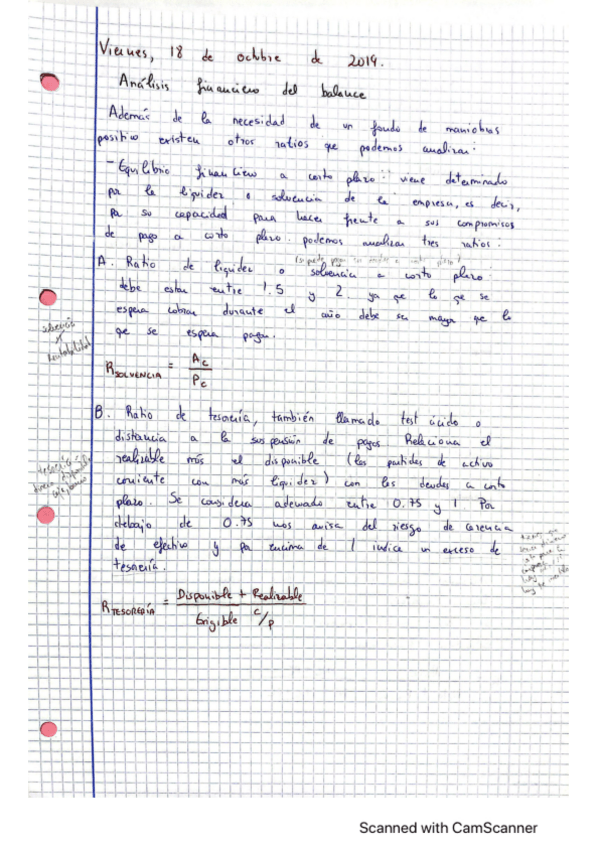 Viernes, 18 de octubre de 2019.
Análisis financiero del balance
Además de la necesidad de un fondo de maniobras
positivo existen otros ratios que podemos analizar:
- Equilibrio financiero a corto plazo: viene determinado
por la liquidez o solvencia de la empresa, es decir,
por su capacidad para hacer frente a sus compromisos
de pago a corto plazo. podemos analizar tres ratios:
A. Ratio de liquidez o solvencia a corto plazo:
debe estar entre 1.5 y 2. ya que lo que se
espera cobrar durante el año debe ser mayor que lo
que se espera pagar.
rentabilidad
RSOLVENCIA = Ac
Pc
B. Ratio de tesorería, también llamado test ácido o
distancia a la suspensión de pagos. Relaciona el
realizable más el disponible (las partidas de activo
corriente con más liquidez) con las deudas a corto
plazo. Se considera adecuado entre 0.75 y 1 Por
debajo de 0.75 nos avisa del riesgo de carencia
de efectivo y por encima de 1 indica un exceso de
tesorería.
RTESORERÍA = Disponible + Realizable
Exigible c/p
Scanned with CamScanner